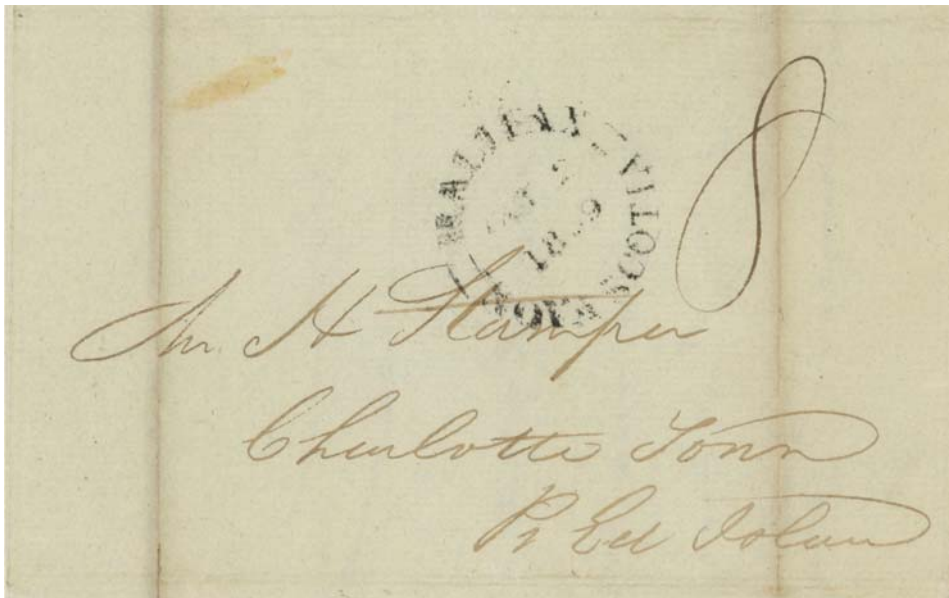 HALIFAX
NOVA SCOTIA
8
Mr. H Stamper
Charlotte Town
Pr Ed Islan